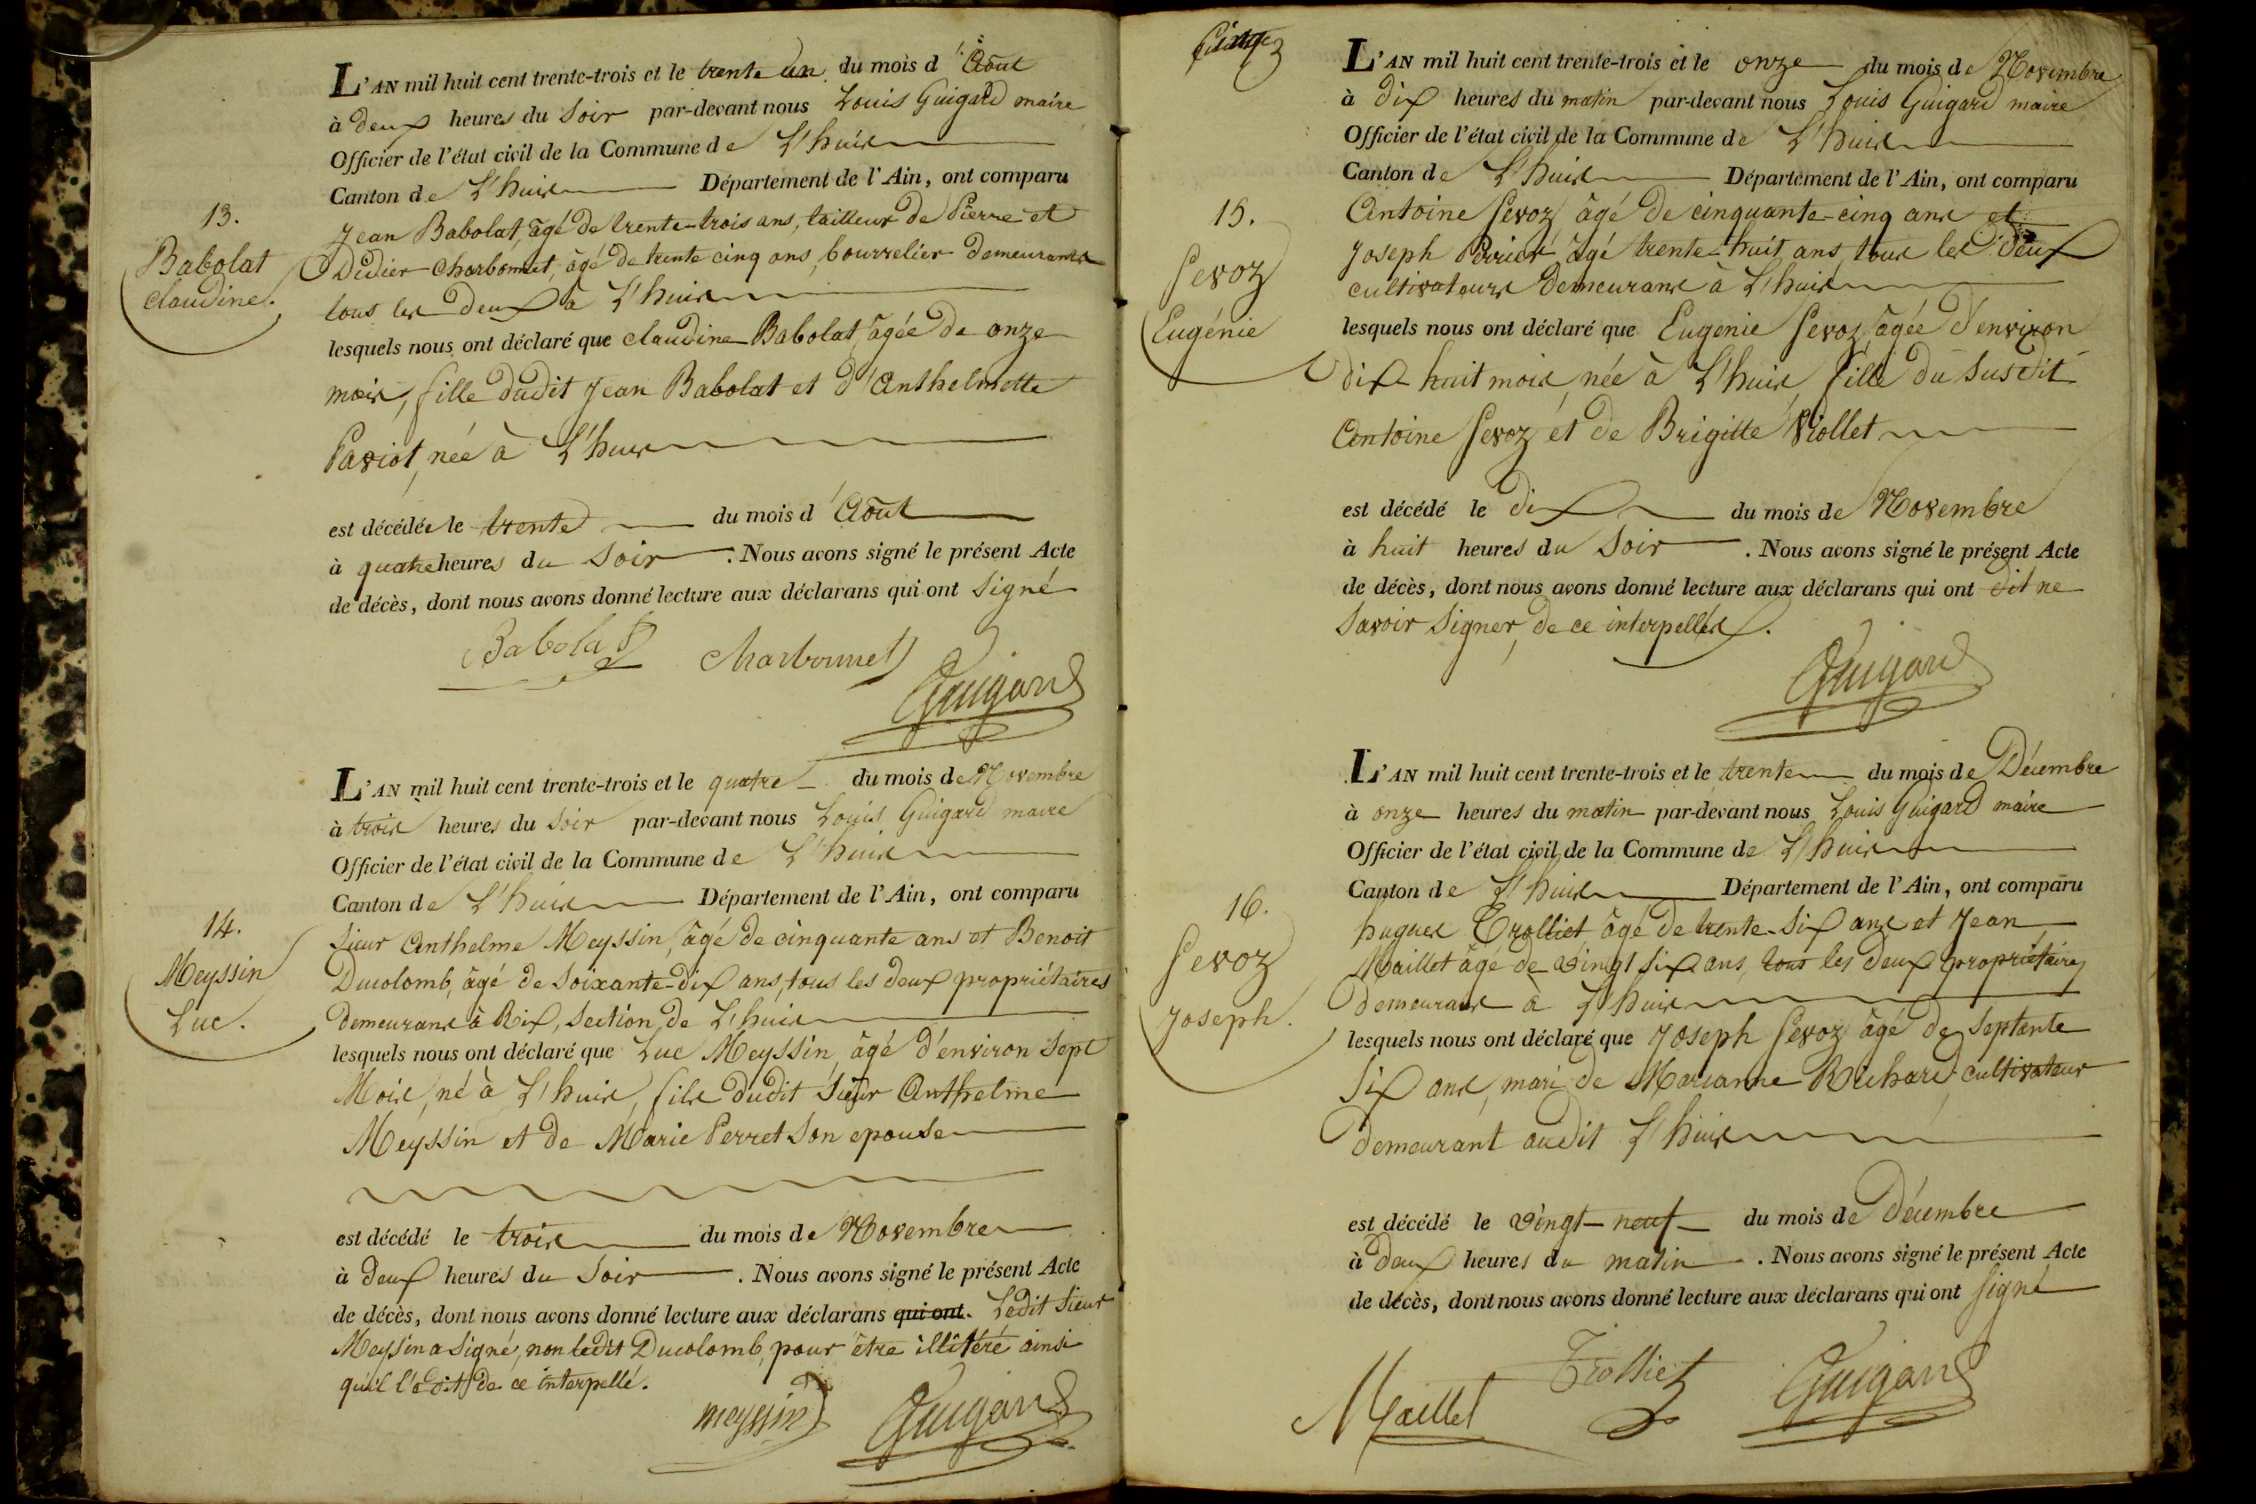 L'AN mil huit cent trente-trois et le trente un du mois d'Août
à deux heures du Soir par-devant nous Louis Guigard maire
Officier de l'état civil de la Commune de L'huis
Canton de L'huis Département de l'Ain, ont comparu
13.
Babolat
claudine.
Jean Babolat, âgé de trente-trois ans, tailleur de Pierre et
Didier Charbonnet, âgé de trente cinq ans, bourrelier demeurants
tous les deux à L'huis
lesquels nous ont déclaré que claudine Babolat, âgée de onze
mois, fille dudit Jean Babolat et d'Anthelmette
Paviot, née à L'huis
est décédée le trente du mois d'Août
à quatre heures du Soir. Nous avons signé le présent Acte
de décès, dont nous avons donné lecture aux déclarans qui ont Signé
Babolat Charbonnet
Guigard
L'AN mil huit cent trente-trois et le quatre du mois de Novembre
à trois heures du Soir par-devant nous Louis Guigard maire
Officier de l'état civil de la Commune de L'huis
Canton de L'huis Département de l'Ain, ont comparu
14.
Meyssin
Luc.
Sieur Anthelme Meyssin, âgé de cinquante ans et Benoit
Ducolomb, âgé de Soixante-dix ans, tous les deux propriétaires
demeurans à Rix, Section de L'huis
lesquels nous ont déclaré que Luc Meyssin, âgé d'environ Sept
Mois, né à L'huis, fils dudit Sieur Anthelme
Meyssin et de Marie Perret Son epouse
est décédé le trois du mois de Novembre
à deux heures du Soir. Nous avons signé le présent Acte
de décès, dont nous avons donné lecture aux déclarans qui ont. Ledit Sieur
Meyssin a Signé, non ledit Ducolomb, pour être illitéré ainsi
qu'il l'a dit de ce interpellé.
meyssin Guigard
L'AN mil huit cent trente-trois et le onze du mois de Novembre
à dix heures du matin par-devant nous Louis Guigard maire
Officier de l'état civil de la Commune de L'huis
Canton de L'huis Département de l'Ain, ont comparu
15.
Sevoz
Eugénie
Antoine Sevoz, âgé de cinquante-cinq ans et
Joseph Perrier âgé trente-huit ans, tous les deux
cultivateurs demeurans à L'huis
lesquels nous ont déclaré que Eugenie Sevoz, âgée d'environ
dix-huit mois, née à L'huis, fille du Susdit
Antoine Sevoz et de Brigitte Viollet
est décédé le dix du mois de Novembre
à huit heures du Soir. Nous avons signé le présent Acte
de décès, dont nous avons donné lecture aux déclarans qui ont dit ne
Savoir Signer, de ce interpellés.
Guigard
L'AN mil huit cent trente-trois et le trente du mois de Décembre
à onze heures du matin par-devant nous Louis Guigard maire
Officier de l'état civil de la Commune de L'huis
Canton de L'huis Département de l'Ain, ont comparu
16.
Sevoz
Joseph.
hugues Trolliet âgé de trente-Six ans et Jean
Maillet âgé de vingt Six ans, tous les deux propriétaires
demeurans à L'huis
lesquels nous ont déclaré que Joseph Sevoz âgé de Septante
Six ans, mari de Marianne Richard, cultivateur
demeurant audit L'huis
est décédé le vingt-neuf du mois de Décembre
à deux heures du matin. Nous avons signé le présent Acte
de décès, dont nous avons donné lecture aux déclarans qui ont Signé
Maillet Trolliet Guigard